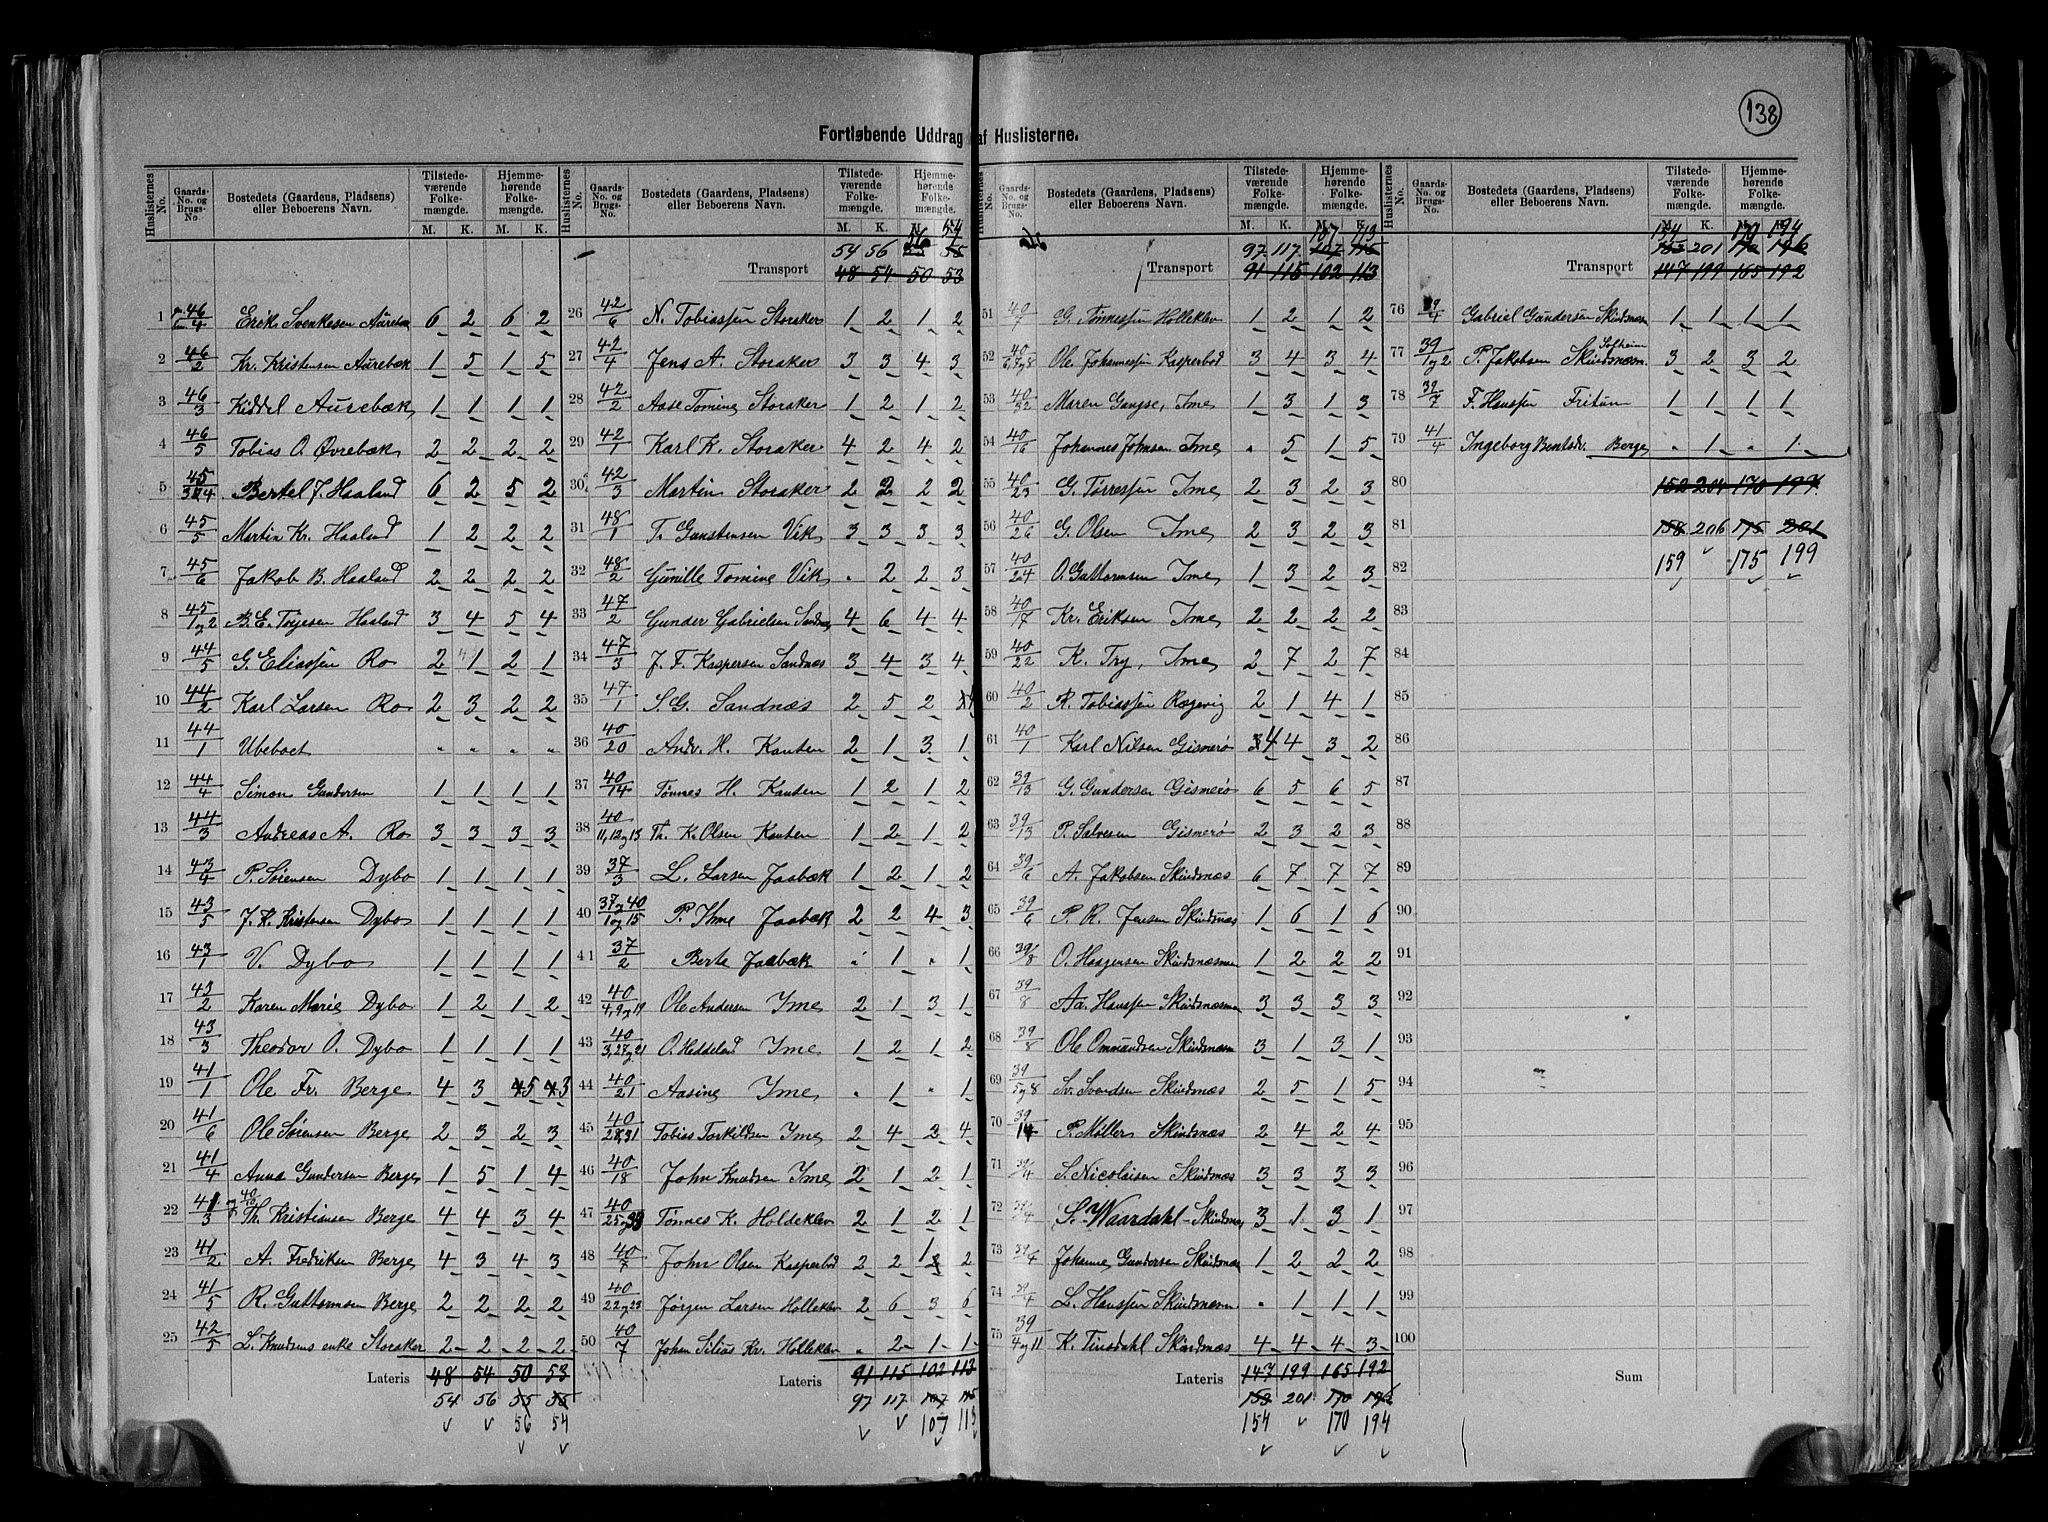 138
Fortløbende Uddrag af Huslisterne.
Huslisternes No. Gaards-No. og Brugs-No. Bostedets (Gaardens, Pladsens) eller Beboerens Navn. Tilstedeværende Folkemængde. Hjemmehørende Folkemængde.
M. K. M. K.
1 46/4 Erik Svenkesen Aurebæk 6 2 6 2
2 46/2 Kr. Kristensen Aurebæk 1 5 1 5
3 46/3 Kiddel Aurebæk 1 1 1 1
4 46/5 Tobias O. Øvrebæk 2 2 2 2
5 45/3 4 Bertel J. Haaland 6 2 5 2
6 45/5 Martin Kr. Haaland 1 2 2 2
7 45/6 Jakob B. Haaland 2 2 2 2
8 45/1 og 2 B. E. Torjesen Haaland 3 4 5 4
9 44/5 G. Eliassen Ro 2 1 2 1
10 44/2 Karl Larsen Ro 2 3 2 2
11 44/1 Ubeboet " " " "
12 44/4 Simon Gundersen 1 1 1 1
13 44/3 Andreas A. Ro 3 3 3 3
14 43/4 P. Sørensen Dybo 1 1 1 1
15 43/5 J. K. Kristensen Dybo 1 1 1 1
16 43/1 V. Dybo 1 1 1 1
17 43/2 Karen Marie Dybo 1 2 1 2
18 43/3 Theodor O. Dybo 1 1 1 1
19 41/1 Ole Fr. Berge 4 3 5 3
20 41/6 Ole Sørensen Berge 2 3 2 3
21 41/4 Anna Gundersen Berge 1 5 1 4
22 41/3 40/10 Th. Kristiansen Berge 4 4 3 4
23 41/2 A. Fredriksen Berge 4 3 4 3
24 41/5 R. Guttormsen Berge 2 2 2 2
25 42/5 L. Knudsens enke Storaker 2 2 2 2
Lateris 48 54 50 53
54 56 55 55
56 54
Huslisternes No. Gaards-No. og Brugs-No. Bostedets (Gaardens, Pladsens) eller Beboerens Navn. Tilstedeværende Folkemængde. Hjemmehørende Folkemængde.
M. K. M. K.
56 54
54 56 55 55
Transport 48 54 50 53
26 42/6 N. Tobiassen Storaker 1 2 1 2
27 42/4 Jens A. Storaker 3 3 4 3
28 42/2 Aase Tomine Storaker 1 2 1 2
29 42/1 Karl K. Storaker 4 2 4 2
30 42/3 Martin Storaker 2 2 2 2
31 48/1 T. Gunstensen Vik 3 3 3 3
32 48/2 Gunille Tomine Vik " 2 2 3
33 47/2 Gunder Gabrielsen Sandnæs 4 6 4 4
34 47/3 J. F. Kaspersen Sandnæs 3 4 3 4
35 47/1 S. G. Sandnæs 2 5 2 4
36 40/20 Andr. H. Kauten 2 1 3 1
37 40/14 Tønnes H. Kauten 1 2 1 2
38 40/11, 12 og 13 Th. K. Olsen Kauten 1 2 1 2
39 37/3 L. Larsen Faabæk 1 2 1 2
40 37 og 40/1 og 15 P. Ime Faabæk 2 2 4 3
41 37/2 Berte Faabæk " 1 " 1
42 40/4, 9 og 19 Ole Andersen Ime 2 1 3 1
43 40/3, 27 og 21 O. Heddeland Ime 1 2 1 2
44 40/21 Aasine Ime " 1 " 1
45 40/28, 31 Tobias Torkildsen Ime 2 4 2 4
46 40/18 John Knudsen Ime 2 1 2 1
47 40/25 og 33 Tønnes K. Holdeklev 2 1 2 1
48 40/7 John Olsen Kasperbod 2 2 1 2
49 40/22 og 23 Jørgen Larsen Holleklev 2 6 3 6
50 40/7 Johan Silias Kr. Holleklev " 2 1 1
Lateris 91 115 102 113
97 117 107 115
107 113
Huslisternes No. Gaards-No. og Brugs-No. Bostedets (Gaardens, Pladsens) eller Beboerens Navn. Tilstedeværende Folkemængde. Hjemmehørende Folkemængde.
M. K. M. K.
107 113
97 117 107 115
Transport 91 115 102 113
51 40/7 G. Tønnessen Holleklev 1 2 1 2
52 40/6, 7 og 8 Ole Johannessen Kasperbod 3 4 3 4
53 40/32 Maren Gangse, Ime 1 3 1 3
54 40/16 Johannes Johnsen Ime " 5 1 5
55 40/23 G. Tørressen Ime 2 3 2 3
56 40/26 G. Olsen Ime 2 3 2 3
57 40/24 O. Guttormsen Ime 1 3 2 3
58 40/17 Kr. Eriksen Ime 2 2 2 2
59 40/22 K. Try, Ime 2 7 2 7
60 40/2 R. Tobiassen Rogevig 2 1 4 1
61 40/1 Karl Nilsen Gismerø 4 4 3 2
62 39/13 G. Gundersen Gismerø 6 5 6 5
63 39/13 P. Salvesen Gismerø 2 3 2 3
64 39/6 A. Jakobsen Skindsnæs 6 7 7 7
65 39/6 P. R. Jensen Skindsnæs 1 6 1 6
66 39/8 O. Haagensen Skindsnæsmon 1 2 2 2
67 39/8 Aa. Hanssen Skindsnæsmon 3 3 3 3
68 39/8 Ole Ommundsen Skindsnæsm 3 1 3 1
69 39/5 og 8 Sv. Svendsen Skindsnæs 2 5 1 5
70 39/14 P. Møller Skindsnæs 2 4 2 4
71 39/4 S. Nicolaisen Skindsnæs 3 3 3 3
72 39/4 S. Waardahl Skindsnæs 3 1 3 1
73 39/4 Johanne Gundersen Skindsnæs 1 2 2 2
74 39/4 L. Hanssen Skindsnæsm " 1 1 1
75 39/4 og 11 K. Tinsdahl Skindsnæs 4 4 4 3
Lateris 147 199 165 192
153 201 170 196
154 170 194
Huslisternes No. Gaards-No. og Brugs-No. Bostedets (Gaardens, Pladsens) eller Beboerens Navn. Tilstedeværende Folkemængde. Hjemmehørende Folkemængde.
M. K. M. K.
154 170 194
153 201 170 196
Transport 147 199 165 192
76 39/4 Gabriel Gundersen Skindsnæs 1 1 1 1
77 39/1 og 2 P. Jakobsen Solheim Skindsnæsm. 3 2 3 2
78 39/7 F. Hanssen Fritun 1 1 1 1
79 41/4 Ingeborg Bentsdr. Berge " 1 " 1
80 152 204 170 197
81 158 206 175 201
159 175 199
82
83
84
85
86
87
88
89
90
91
92
93
94
95
96
97
98
99
100
Sum